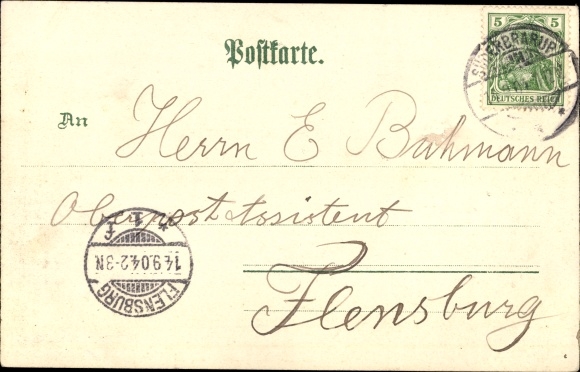 5 5
Postkarte.
SÜDERBRARUP
DEUTSCHES REICH
An
Herrn E Buhmann
Oberpostassistent
Flensburg
* 1 f
14.9.04.2-3N
FLENSBURG